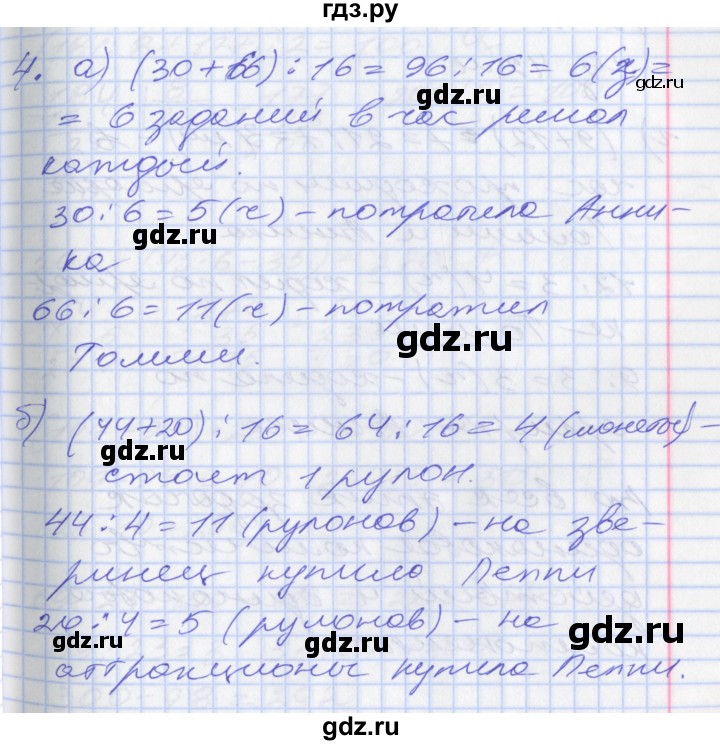 гдз.ру
4. а) (30+66):16=96:16=6(з)=
= 6 заданий в час решал
каждый.
30:6=5(ч)-потратила Анни-
ка
66:6=11(ч)-потратил
Томми.
б) (44+20):16=64:16=4(монеты)-
стоит 1 рулон.
44:4=11(рулонов)-на зве-
ринец купило Пеппи
20:4=5(рулонов)-на
аттракционы купила Пеппи.
gdz.ru
gdz.ru
gdz.ru
gdz.ru
gdz.ru
gdz.ru
gdz.ru
gdz.ru
gdz.ru